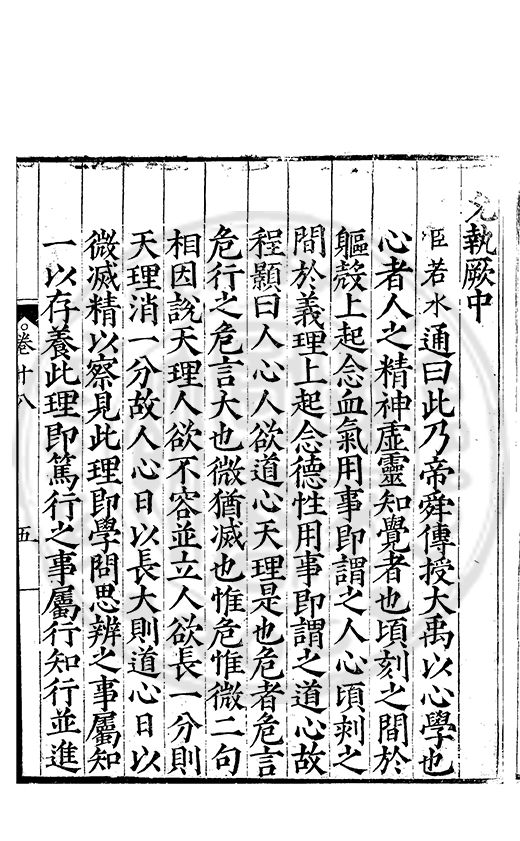 允執厥中
臣若水通曰此乃帝舜傳授大禹以心學也
心者人之精神虛靈知覺者也頃刻之間於
軀殼上起念血氣用事即謂之人心頃刻之
間於義理上起念德性用事即謂之道心故
程顥曰人心人欲道心天理是也危者危言
危行之危言大也微猶滅也惟危惟微二句
相因說天理人欲不容並立人欲長一分則
天理消一分故人心日以長大則道心日以
微滅精以察見此理即學問思辨之事屬知
一以存養此理即篤行之事屬行知行並進
卷十八
五